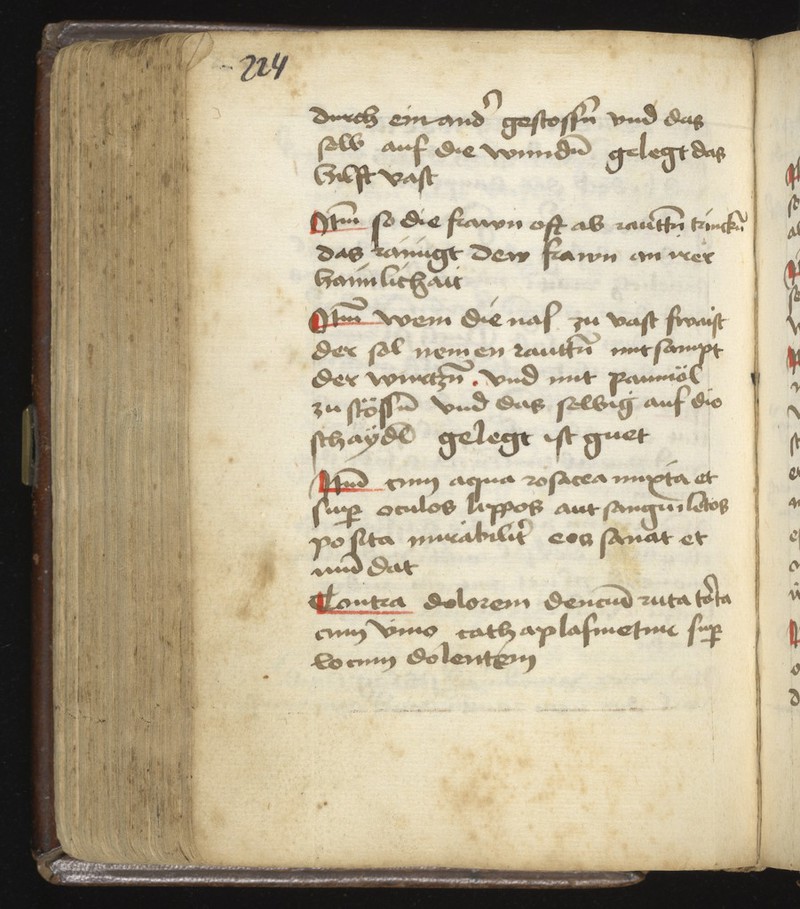 224
durch ein and' gestossn̄ vnd das
selb auf die wundn̄ gelegt das
hilft vast
Itm̄ so die frawn oft ab rauttn̄ trinckn̄
das rainigt dew frawn an irer
haimlichait
Itm̄ wem die nas zu vast swaist
der sol nemen rauttn̄ mit sampt
der wurtzn̄ . vnd mit paumöl
zu stössn̄ vnd das selbig auf die
schaydl̄ gelegt ist guet
Itm̄ cum aqua rosacea mixta et
sup̱ oculos lippos aut sanguīlētos
posita mirabilit' eos sanat et
mūdat
Contra dolorem denciū ruta t'ta
cum vino cathaplasmetur sup̱
locum dolentem